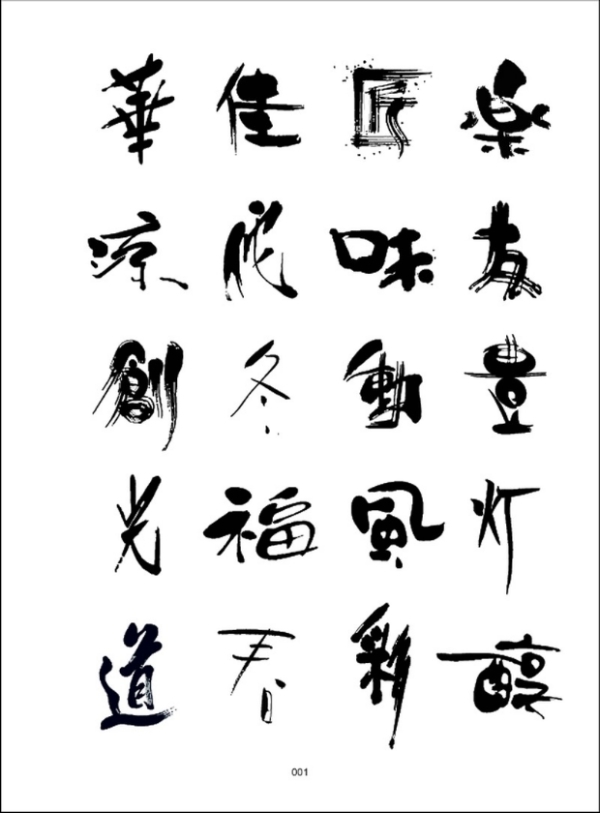 華 佳 匠 楽
涼 味 友
創 冬 動 豊
光 福 風 灯
道 春 彩 醇
001